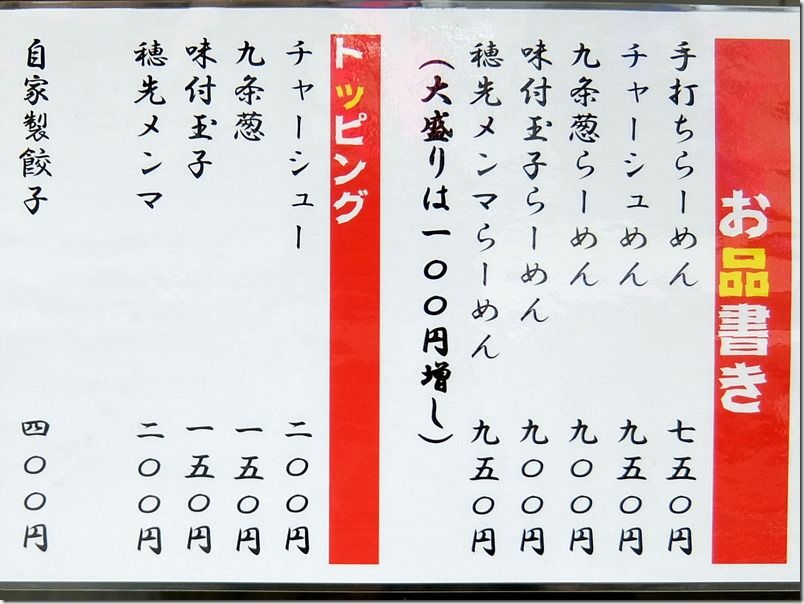 お品書き
手打ちらーめん 七五〇円
チャーシュめん 九五〇円
九条葱らーめん 九〇〇円
味付玉子らーめん 九〇〇円
穂先メンマらーめん 九五〇円
(大盛りは一〇〇円増し)
トッピング
チャーシュー 二〇〇円
九条葱 一五〇円
味付玉子 一五〇円
穂先メンマ 二〇〇円
自家製餃子 四〇〇円